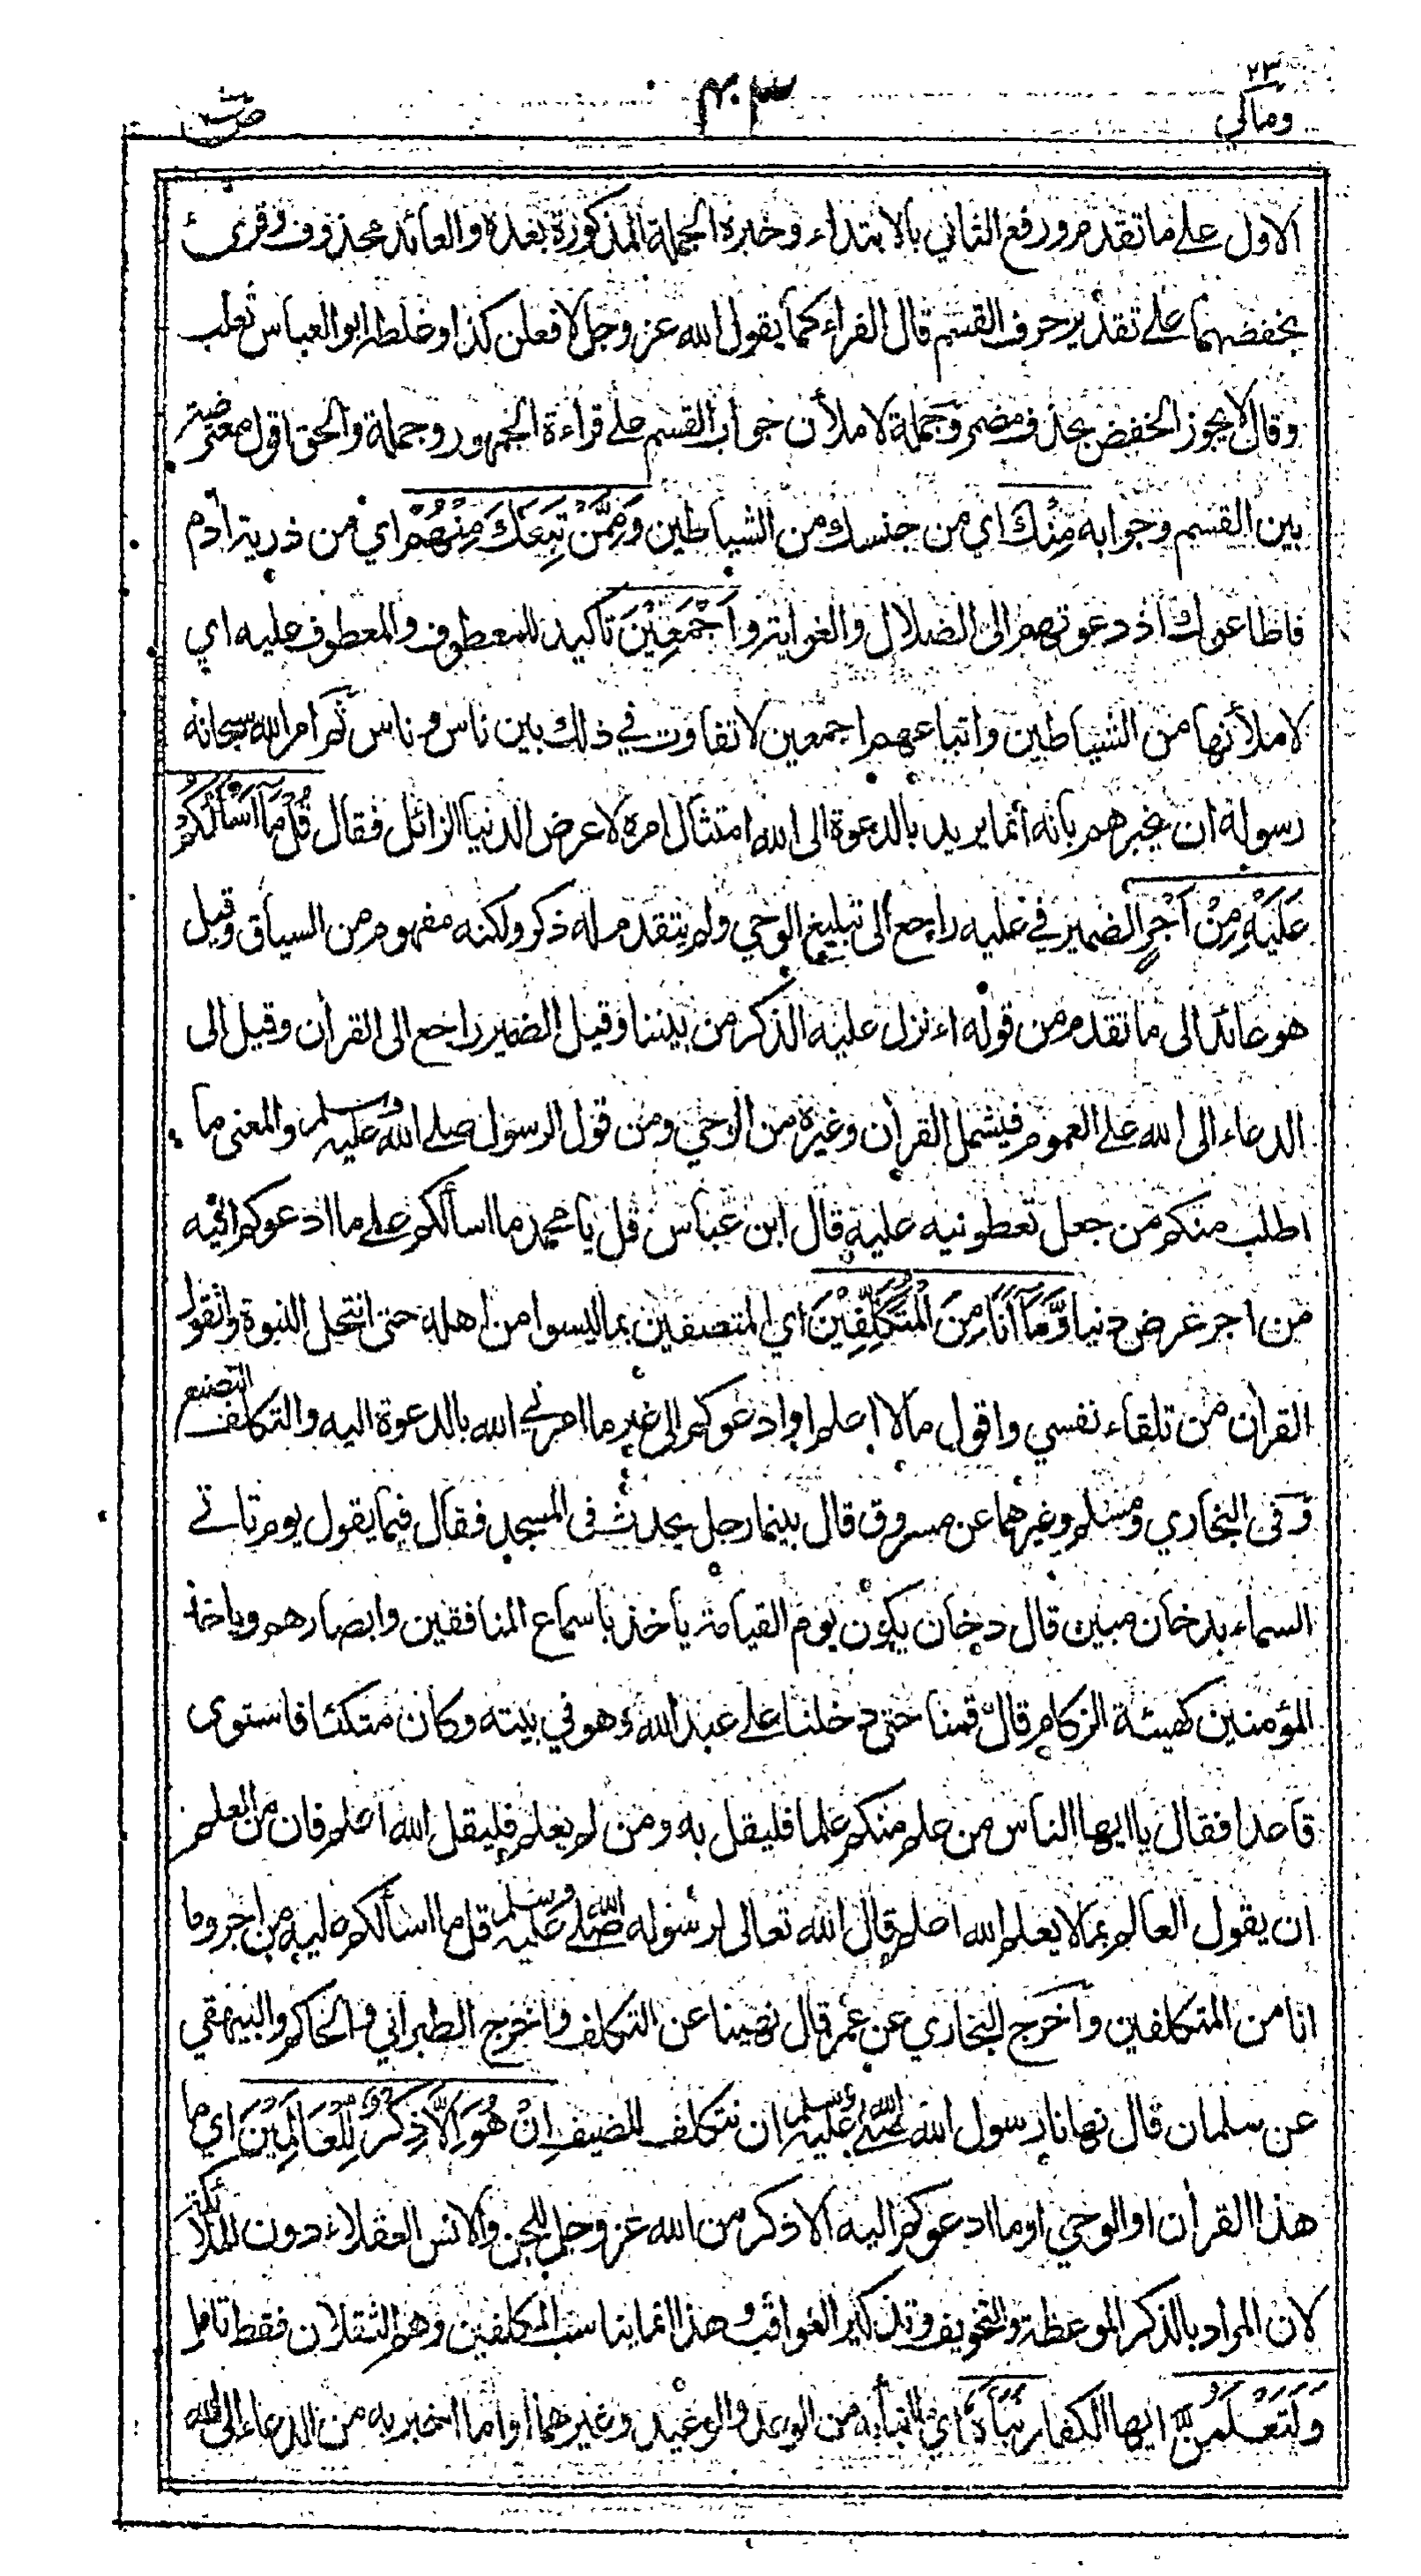 ٢٣
ومالي
٤٠٣
ص
الاول على ما تقدم ورفع الثاني بالابتداء وخبره الجملة المذكورة بعده والعائد محذوف وقرئ
بخفضهما على تقدير حرف القسم قال الفراء كما يقول الله عز وجل لافعلن كذا وغلطه ابو العباس ثعلب
وقال لا يجوز الخفض بحذف مضمر وجملة لاملأن جواب القسم على قراءة الجمهور وجملة والحق اقول معترضة
بين القسم وجوابه مِنْكَ اي من جنسك من الشياطين وَمِمَّنْ تَبِعَكَ مِنْهُمْ اي من ذرية ادم
فاطاعوك اذ دعوتهم الى الضلال والغواية و اَجْمَعِيْنَ تاكيد للمعطوف والمعطوف عليه اي
لاملأنها من الشياطين واتباعهم اجمعين لا تفاوت في ذلك بين ناس وناس ثم امر الله سبحانه
رسوله ان يخبرهم بانه انما يريد بالدعوة الى الله امتثال امره لا عرض الدنيا الزائل فقال قُلْ مَآ اَسْأَلُكُمْ
عَلَيْهِ مِنْ اَجْرٍ الضمير في عليه راجع الى تبليغ الوحي ولم يتقدم له ذكر ولكنه مفهوم من السياق وقيل
هو عائد الى ما تقدم من قوله اءنزل عليه الذكر من بيننا وقيل الضمير راجع الى القرأن وقيل الى
الدعاء الى الله على العموم فيشمل القرأن وغيره من الوحي ومن قول الرسول صلى الله عليه وسلم والمعنى ما
اطلب منكم من جعل تعطونيه عليه قال ابن عباس قل يا محمد ما اسألكم على ما ادعوكم اليه
من اجر عرض دنيا وَّمَآ اَنَا مِنَ الْمُتَكَلِّفِيْنَ اي المتصفين بما ليسوا من اهله حتى انتحل النبوة واتقول
القرأن من تلقاء نفسي واقول ما لا اعلم او ادعوكم الى غير ما امرني الله بالدعوة اليه والتكلف التصنع
وفي البخاري ومسلم وغيرهما عن مسروق قال بينما رجل يحدث في المسجد فقال فيما يقول يوم تاتي
السماء بدخان مبين قال دخان يكون يوم القيامة ياخذ باسماع المنافقين وابصارهم وياخذ
المؤمنين كهيئة الزكام قال قمنا حتى دخلنا على عبد الله وهو في بيته وكان متكئا فاستوى
قاعدا فقال يا ايها الناس من علم منكم علما فليقل به ومن لم يعلم فليقل الله اعلم فان من العلم
ان يقول العالم بما لا يعلم الله اعلم قال الله تعالى لرسوله صلى الله عليه وسلم قل ما اسألكم عليه من اجر وما
انا من المتكلفين وأخرج البخاري عن عمر قال نهينا عن التكلف وأخرج الطبراني والحاكم والبيهقي
عن سلمان قال نهانا رسول الله صلى الله عليه وسلم ان نتكلف للضيف اِنْ هُوَ اِلَّا ذِكْرٌ لِّلْعَالَمِيْنَ اي ما
هذا القرأن او الوحي او ما ادعوكم اليه الا ذكر من الله عز وجل للجن والانس العقلاء دون الملائكة
لان المراد بالذكر الموعظة والتخويف وتذكير العواقب وهذا انما يناسب المكلفين وهم الثقلان فقط تامل
وَلَتَعْلَمُنَّ ايها الكفار نَبَأَهٗ اي ما انبأ به من الوعد والوعيد وغيرهما او ما اخبر به من الدعاء الى الله